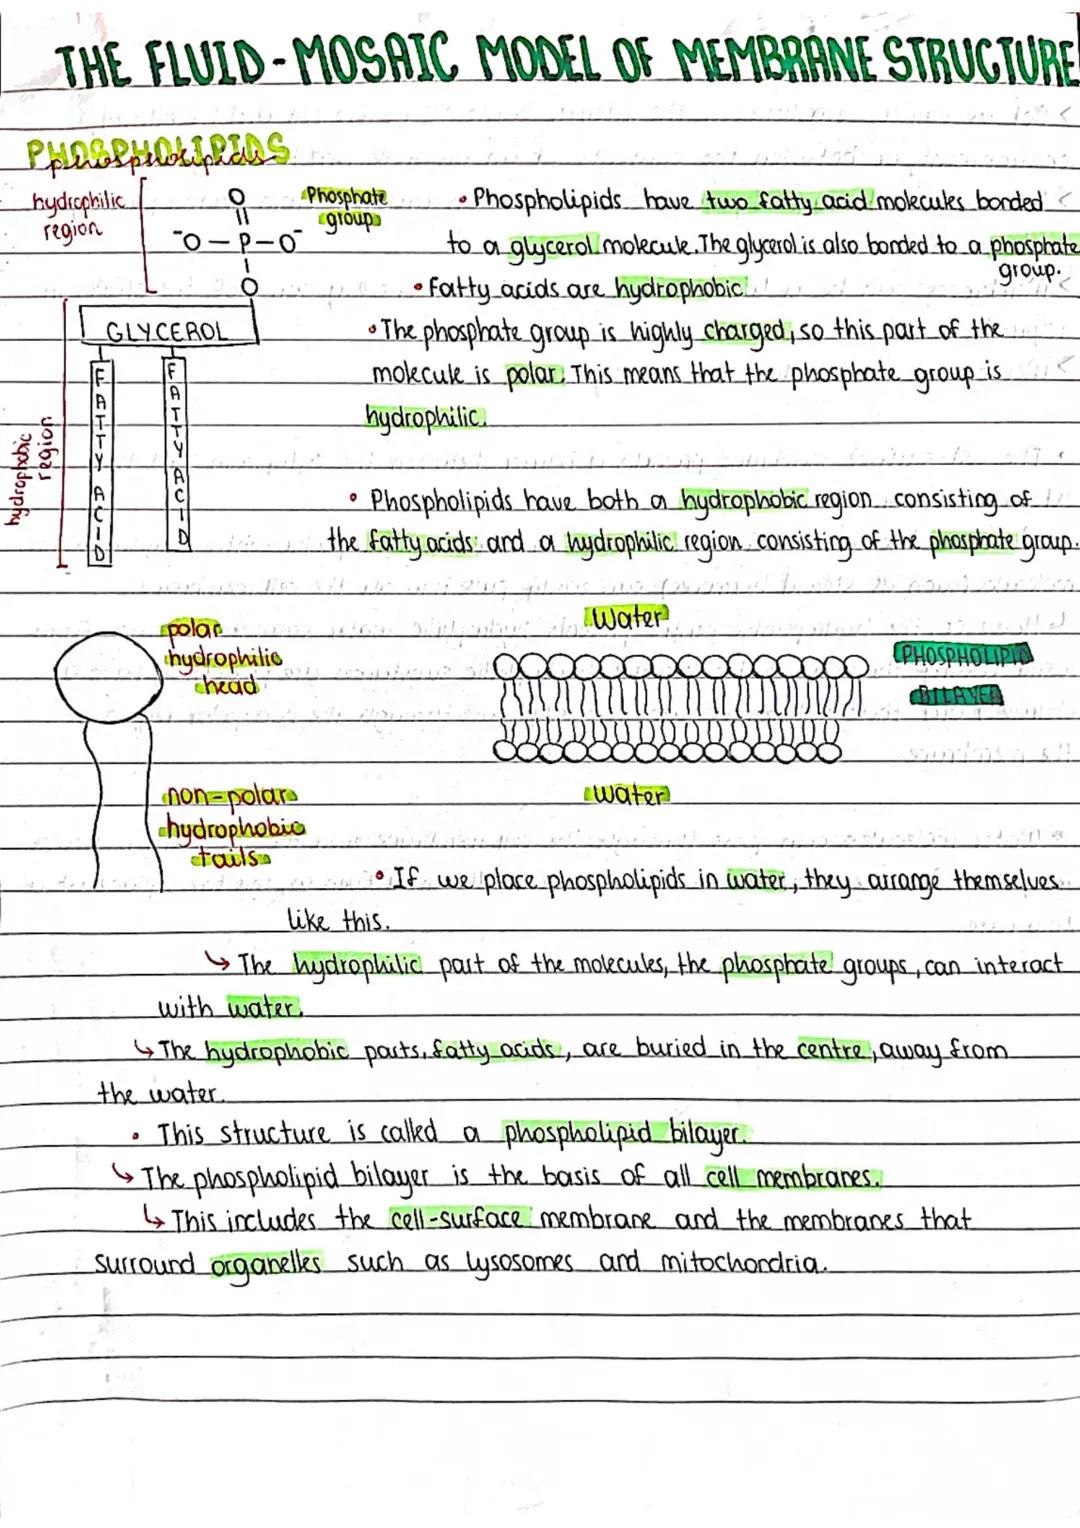 THE FLUID-MOSAIC MODEL OF MEMBRANE STRUCTURE
PHOSPHOLIPIDS
phospholipids
hydrophilic
region
O
Phosphate
group
-O-P-O-
O
GLYCEROL
FATTY ACID
FATTY ACID
hydrophobic
region
• Phospholipids have two fatty acid molecules bonded
to a glycerol molecule. The glycerol is also bonded to a phosphate
group.
• Fatty acids are hydrophobic
• The phosphate group is highly charged, so this part of the
molecule is polar. This means that the phosphate group is
hydrophilic.
• Phospholipids have both a hydrophobic region consisting of
the fatty acids and a hydrophilic region consisting of the phosphate group.
polar
hydrophilic
head
non-polar
hydrophobic
tails
Water
PHOSPHOLIPID
BILAYER
water
• If we place phospholipids in water, they arrange themselves
like this.
↳ The hydrophilic part of the molecules, the phosphate groups, can interact
with water.
↳ The hydrophobic parts, fatty acids, are buried in the centre, away from
the water.
• This structure is called a phospholipid bilayer.
↳ The phospholipid bilayer is the basis of all cell membranes.
↳ This includes the cell-surface membrane and the membranes that
surround organelles such as lysosomes and mitochondria.